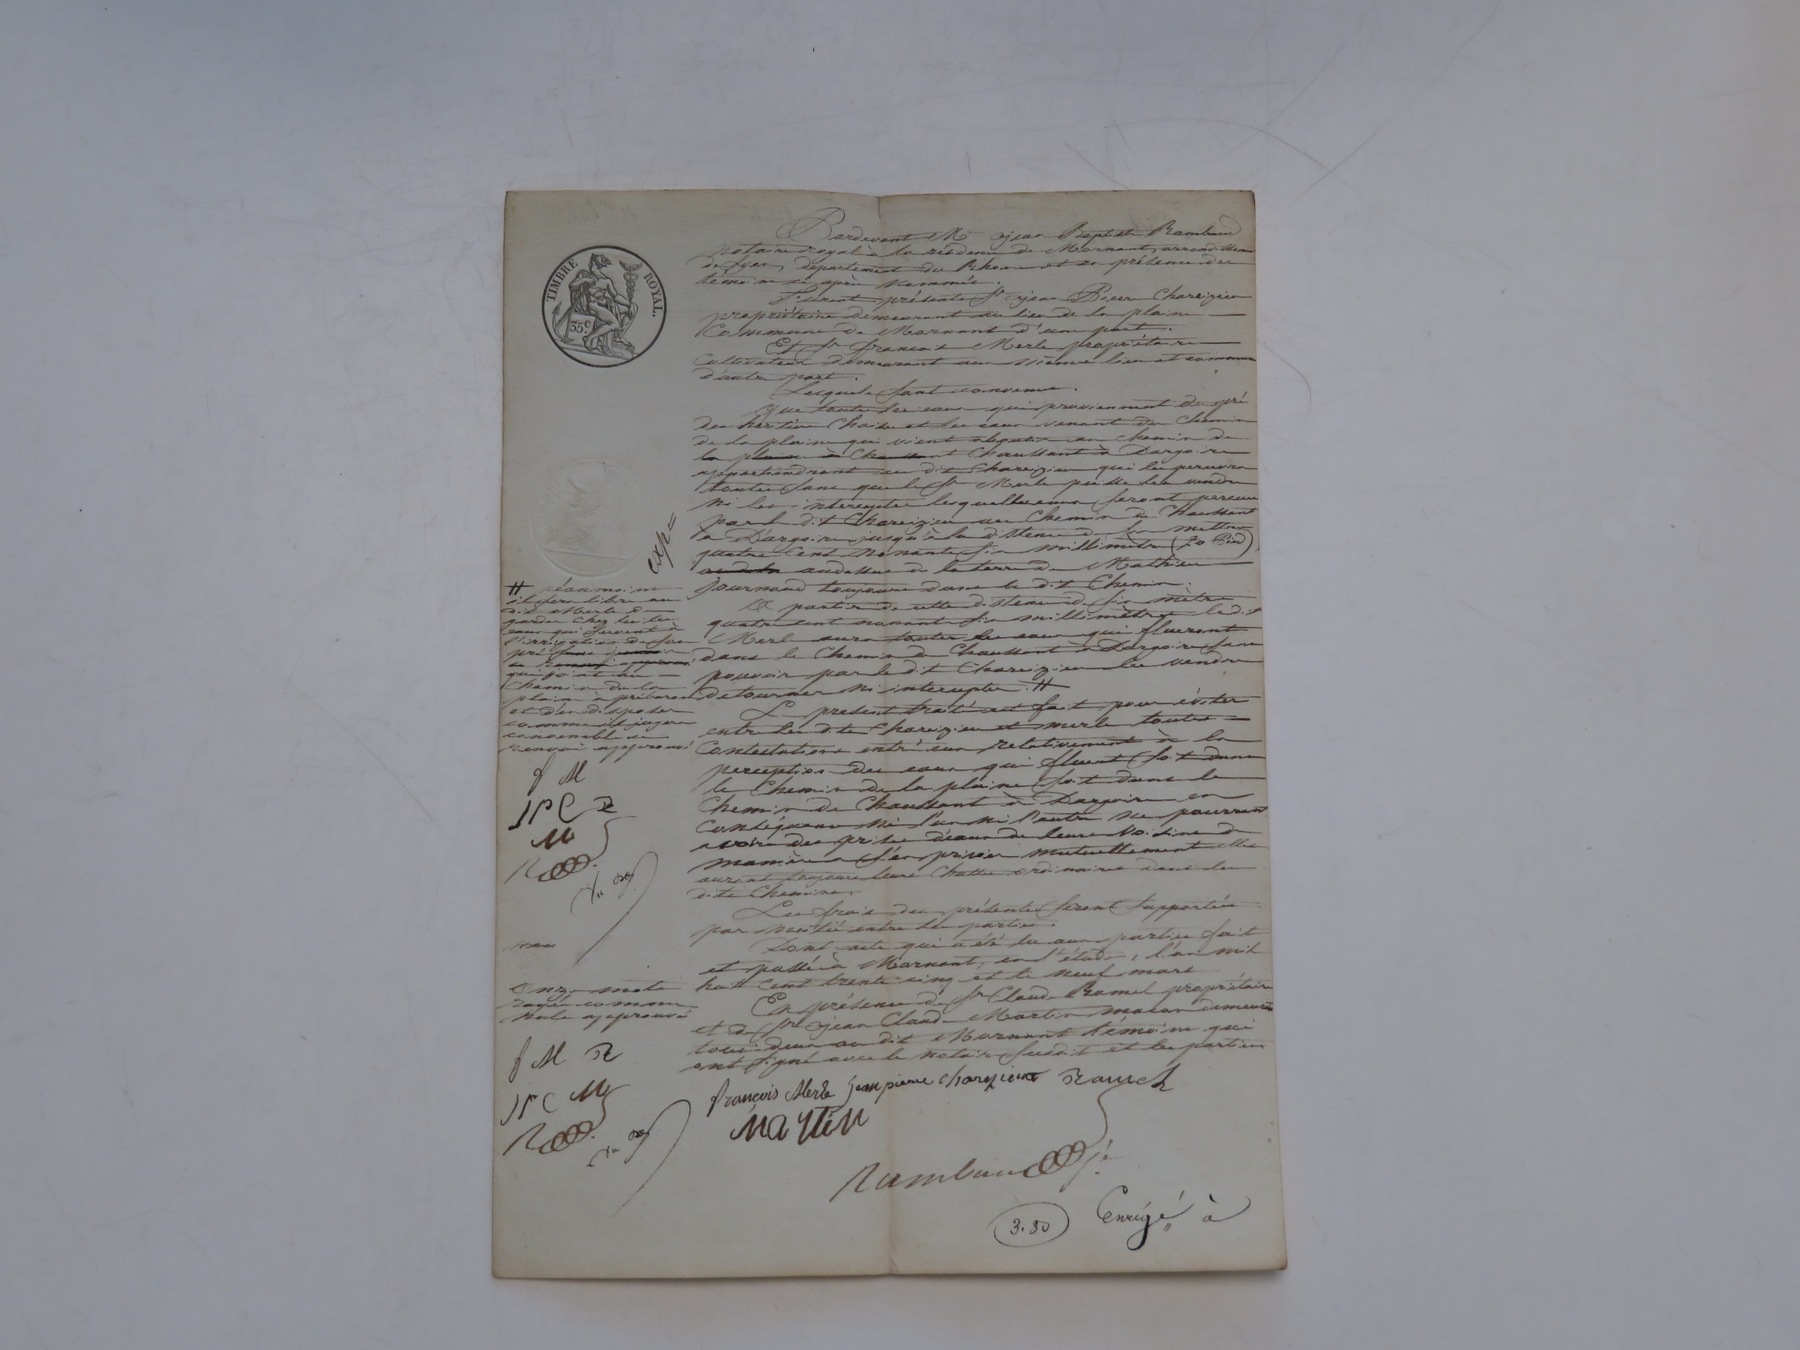 TIMBRE ROYAL.
35 c.
Pardevant Me Jean Baptiste Rambaud
notaire royal à la résidence de Mornant, arrondissem
de Lyon, département du Rhone et en présence des
témoins ci après nommés.
Furent présents Sr Jean Pierre Charezieu
propriétaire demeurant au lieu de la plaine
Commune de Mornant d'une part.
Et Sr françois Merle propriétaire
Cultivateur demeurant au même lieu et commune
d'autre part.
Lesquels sont convenus.
Que toutes les eaux qui proviennent du pré
des héritiers et les eaux venant du Chemin
de la plaine qui vient aboutir au chemin de
la plaine à Chaussant Chaussant à Dargoire
appartiendront au dit Charezieu qui les percevra
toutes sans que le Sr Merle puisse les vendre
ni les intercepter lesquelles eaux seront perçues
par le dit Charezieu au Chemin de Chaussant
à Dargoire jusqu'à la distance de six mètres
quatre cent nonante six millimètres (20 Pieds)
audessus de la terre de Mathieu
Journoud toujours dans le dit Chemin.
A partir de cette distance de six mètres
quatre cent nonante six millimètres le dit
Merle aura toutes les eaux qui flueront
dans le Chemin de Chaussant à Dargoire sans
pouvoir par le dit Charezieu les vendre
détourner ni intercepter. #
Le présent traité est fait pour éviter
entre les dits Charezieu et merle toutes
Contestations entr'eux relativement à la
perception des eaux qui fluent soit dans
le Chemin de la plaine soit dans le
Chemin de Chaussant à Dargoire en
Conséquence ni l'un ni l'autre ne pourront
avoir des prises d'eaux de leurs voisins de
manière à s'en priver mutuellement elles
auront toujours leurs Chutes ordinaires dans les
dits Chemins.
Les frais des présentes seront supportés
par moitié entre les parties.
Dont acte qui a été lu aux parties fait
et passé à Mornant, en l'étude, l'an mil
huit cent trente cinq et le neuf mars
En présence de Sr Claude Ramel propriétaire
et de Sr Jean Claude Martin maçon demeurant
tous deux au dit Mornant témoins qui
ont signé avec le notaire susdit et les parties
françois Merle jean pierre charezieux
MARTIN
Rambaud
3.30
Enrégé à
exp
# néanmoins
il sera libre au
dit Merle de
garder chez lui les
eaux qui servent à
l'irrigation de son
pré
qui joint au
Chemin de la
plaine
et d'en disposer
comme il jugera
convenable ce
renvoi approuvé
f M
JPC R
M
Onze mots
rayés comme
nuls approuvé
f M R
JPC M